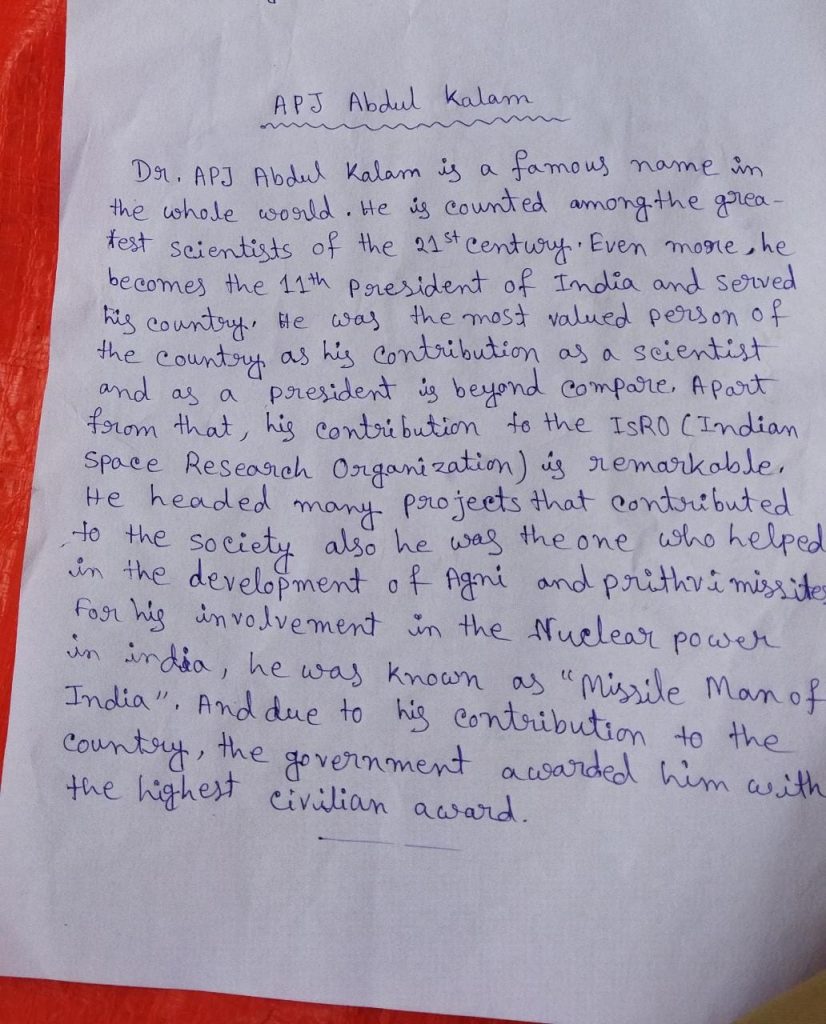 APJ Abdul Kalam
Dr. APJ Abdul Kalam is a famous name in
the whole world. He is counted among the grea-
test scientists of the 21st century. Even more, he
becomes the 11th president of India and served
his country. He was the most valued person of
the country as his contribution as a scientist
and as a president is beyond compare. Apart
from that, his contribution to the ISRO (Indian
Space Research Organization) is remarkable.
He headed many projects that contributed
to the society also he was the one who helped
in the development of Agni and prithvi missites
For his involvement in the Nuclear power
in india, he was known as "Missile Man of
India". And due to his contribution to the
country, the government awarded him with
the highest civilian award.